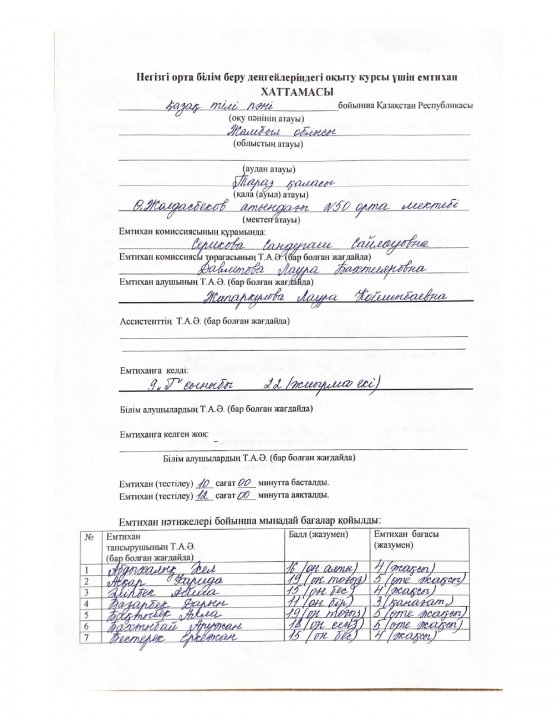 Негізгі орта білім беру деңгейлеріндегі оқыту курсы үшін емтихан
ХАТТАМАСЫ
қазақ тілі пәні бойынша Қазақстан Республикасы
(оқу пәнінің атауы)
Жамбыл облысы
(облыстың атауы)
(аудан атауы)
Тараз қаласы
(қала (ауыл) атауы)
Ө.Жолдасбеков атындағы №50 орта мектебі
(мектеп атауы)
Емтихан комиссиясының құрамында:
Серикова Сандугаш Сайлауовна
Емтихан комиссиясы төрағасының Т.А.Ә. (бар болған жағдайда)
Давлетова Лаура Бахтияровна
Емтихан алушының Т.А.Ә. (бар болған жағдайда)
Жапаркулова Лаура
Ассистенттің Т.А.Ә. (бар болған жағдайда)
Емтиханға келді:
9 "Г" сыныбы 22 (жиырма екі)
Білім алушылардың Т.А.Ә. (бар болған жағдайда)
Емтиханға келген жоқ: –
Білім алушылардың Т.А.Ә. (бар болған жағдайда)
Емтихан (тестілеу) 10 сағат 00 минутта басталды.
Емтихан (тестілеу) 12 сағат 00 минутта аяқталды.
Емтихан нәтижелері бойынша мынадай бағалар қойылды:
№ Емтихан тапсырушының Т.А.Ә. (бар болған жағдайда) Балл (жазумен) Емтихан бағасы (жазумен)
1 16 (он алты) 4 (жақсы)
2 Ақар Фарида 19 (он тоғыз) 5 (өте жақсы)
3 15 (он бес) 4 (жақсы)
4 Базарбек 11 (он бір) 3 (қанағат.)
5 Бақтыбек 19 (он тоғыз) 5 (өте жақсы)
6 Аружан 18 (он сегіз) 5 (өте жақсы)
7 Бестерек Еркежан 15 (он бес) 4 (жақсы)